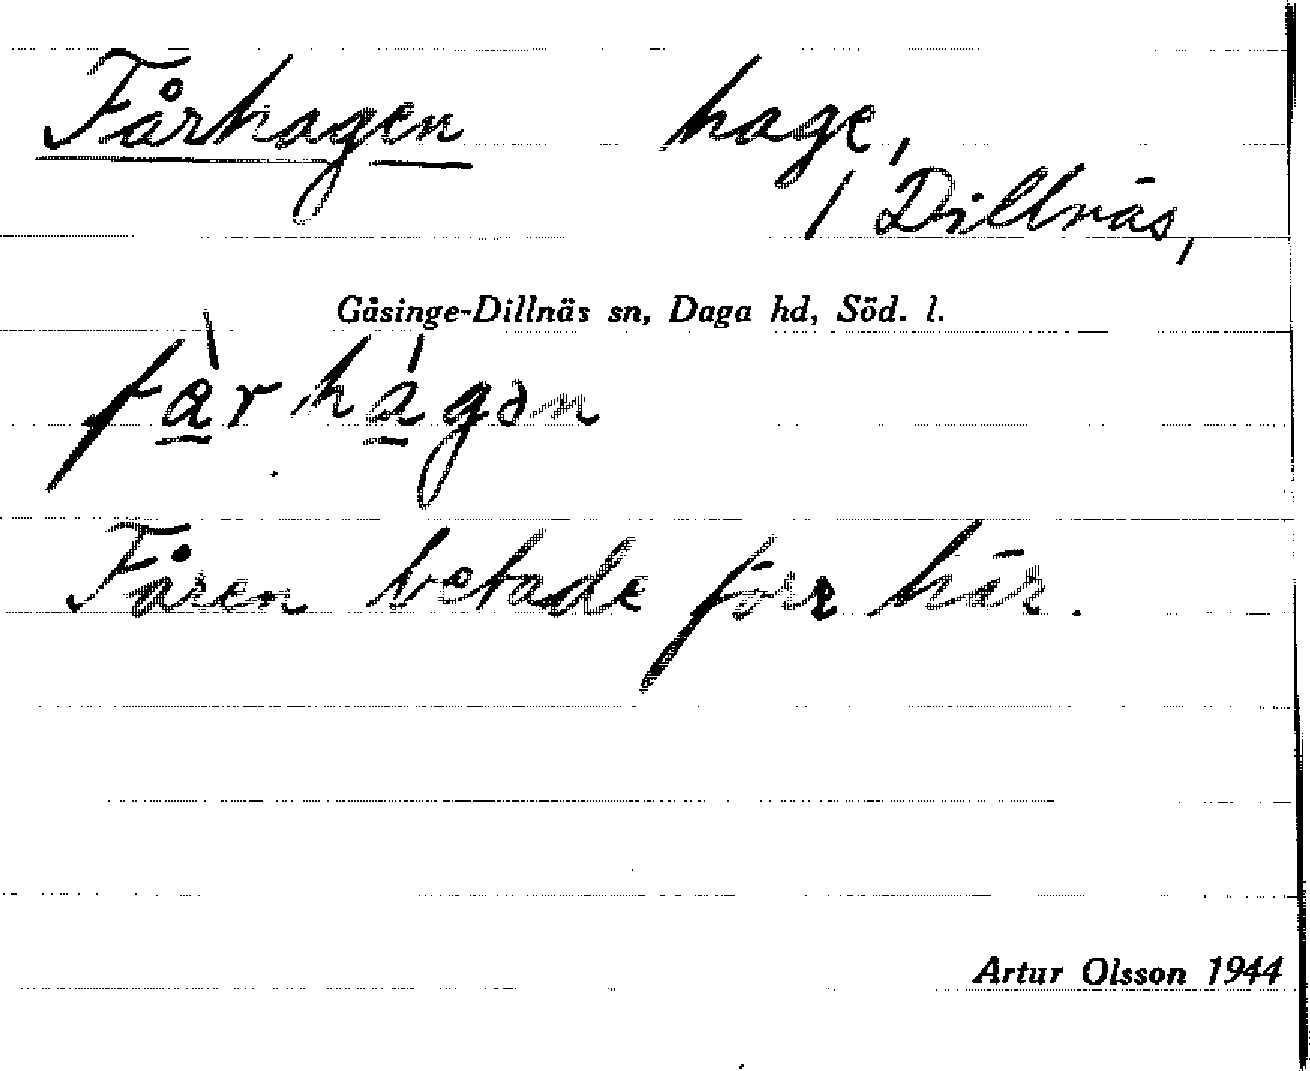 Fårhagen hage,
/ Dillnäs,
Gåsinge-Dillnäs sn, Daga hd, Söd. l.
fàrhágən
Fåren betade förr här.
Artur Olsson 1944